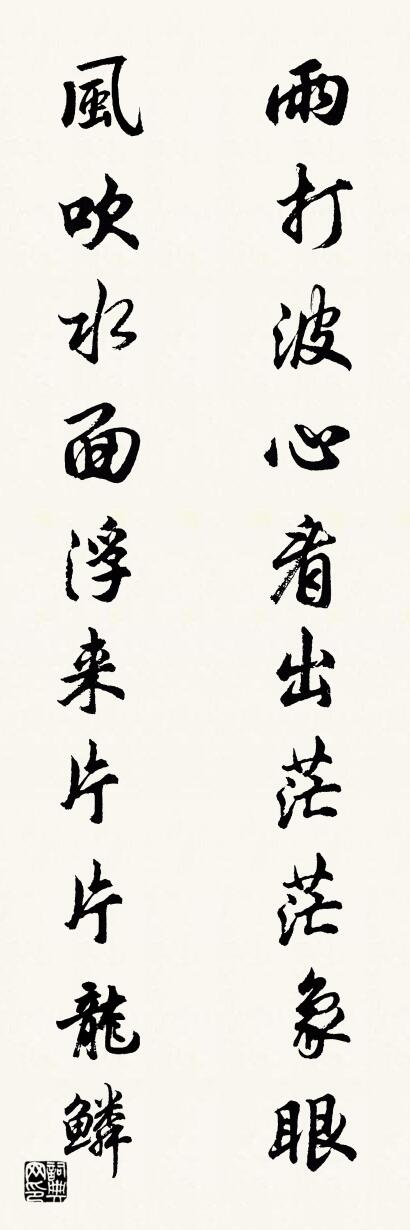 雨打波心看出茫茫象眼
風吹水面浮来片片龍鱗
詞典网印